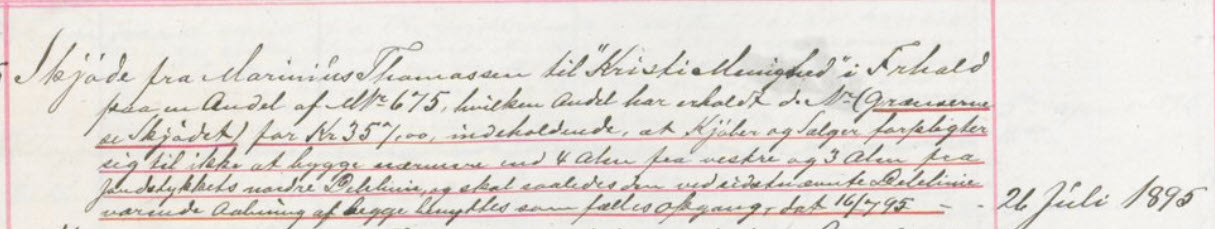 Skjøde fra Marinius Thomassen til "Kristi Menighed" i Frhald
paa en Andel af MNr 675, hvilken Andel har erholdt d. Nr (Grændserne
se Skjødet) for Kr 357,00, indeholdende, at Kjøber og Sælger forpligter
sig til ikke at bygge nærmere end 4 Alen fra vestre og 3 Alen fra
Jordstykkets nordre Delelinie, og skal saaledes den ved sidstnævnte Delelinie
værende Aabning af begge benyttes som fælles opgang, dat 16/7 95 - - 26 Juli 1895